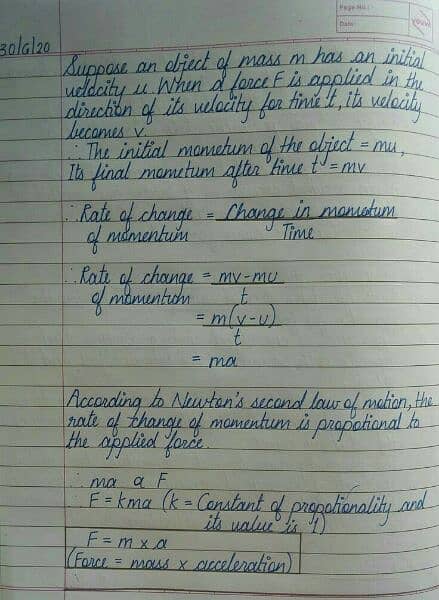 Page No.:
Date:
YOUVA
30/6/20
Suppose an object of mass m has an initial
velocity u. When a force F is applied in the
direction of its velocity for time t, its velocity
becomes v.
∴ The initial mometum of the object = mu,
Its final mometum after time t = mv
∴ Rate of change = Change in mometum
of momentum Time
∴ Rate of change = mv-mu
of momentum t
= m(v-u)
t
= ma
According to Newton's second law of motion, the
rate of change of momentum is propotional to
the applied force.
∴ ma α F
∴ F = kma (k = Constant of propotionality and
its value is 1)
F = m x a
(Force = mass x acceleration)